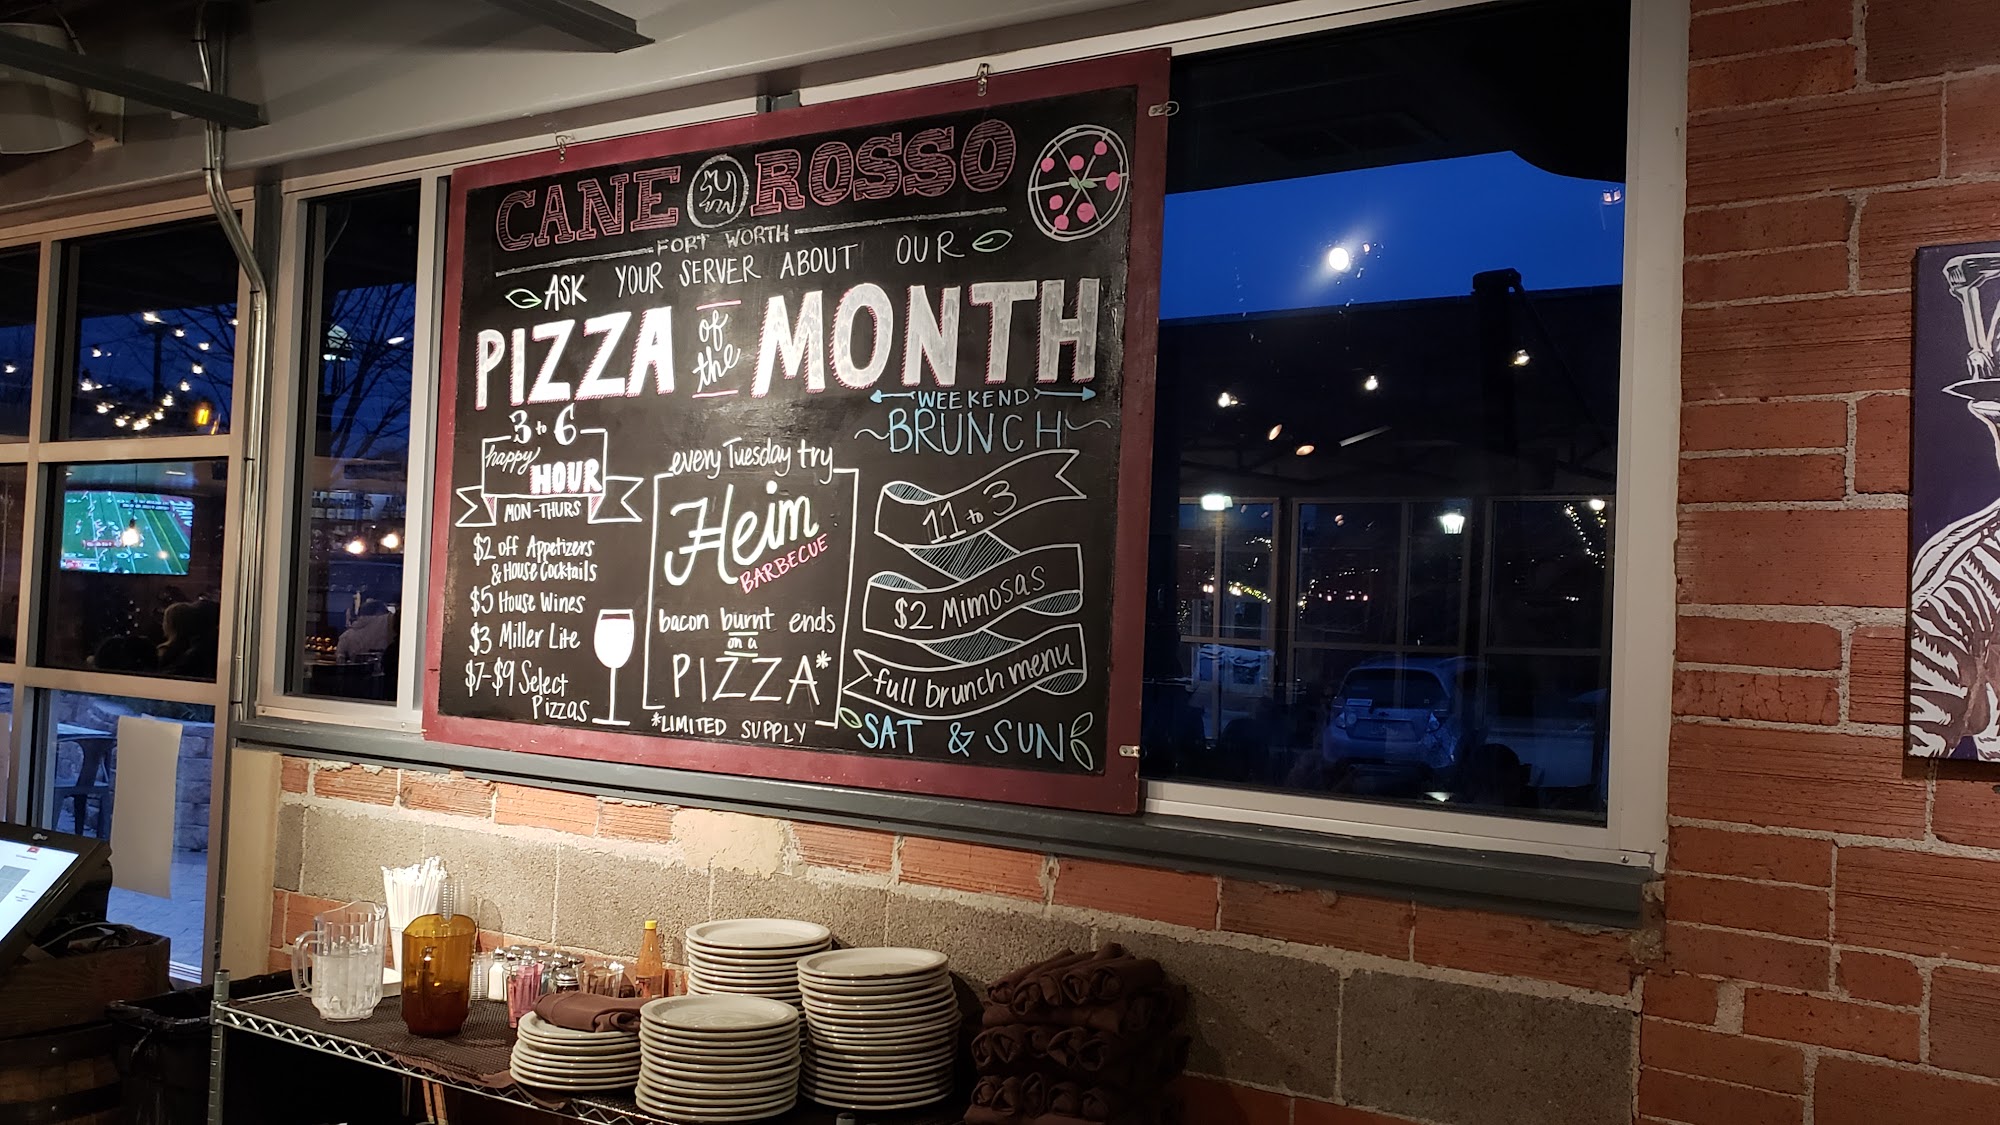 CANE ROSSO
FORT WORTH
ASK YOUR SERVER ABOUT OUR
PIZZA of the MONTH
3 to 6
happy
HOUR
MON-THURS
$2 off Appetizers
& House Cocktails
$5 House Wines
$3 Miller Lite
$7-$9 Select
Pizzas
every Tuesday try
Heim
BARBECUE
bacon burnt ends
on a
PIZZA*
*LIMITED SUPPLY
WEEKEND
BRUNCH
11 to 3
$2 Mimosas
full brunch menu
SAT & SUN